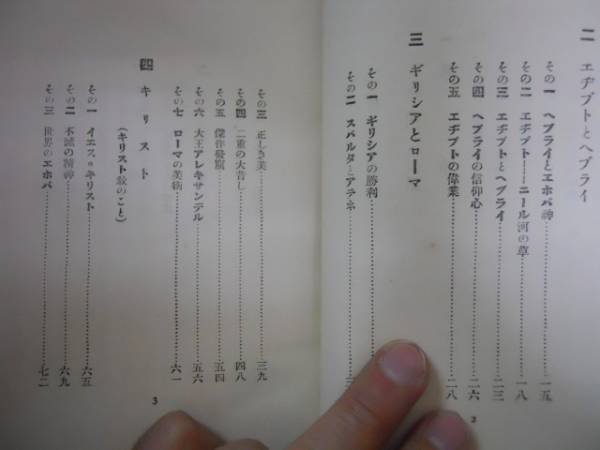 二 エヂプトとヘブライ
その一 ヘブライとエホバ神………一五
その二 エヂプト――ニール河の草………一八
その三 エヂプトとヘブライ………二三
その四 ヘブライの信仰心………二六
その五 エヂプトの偉業………二八
三 ギリシアとローマ
その一 ギリシアの勝利………
その二 スパルタとアテネ………
2
その三 正しき美………三九
その四 二重の大昔し………四八
その五 傑作發掘………五四
その六 大王アレキサンデル………五六
その七 ローマの美術………六一
四 キリスト
(キリスト敎のこと)
その一 イエス・キリスト………六五
その二 不滅の精神………六九
その三 世界のエホバ………七二
3